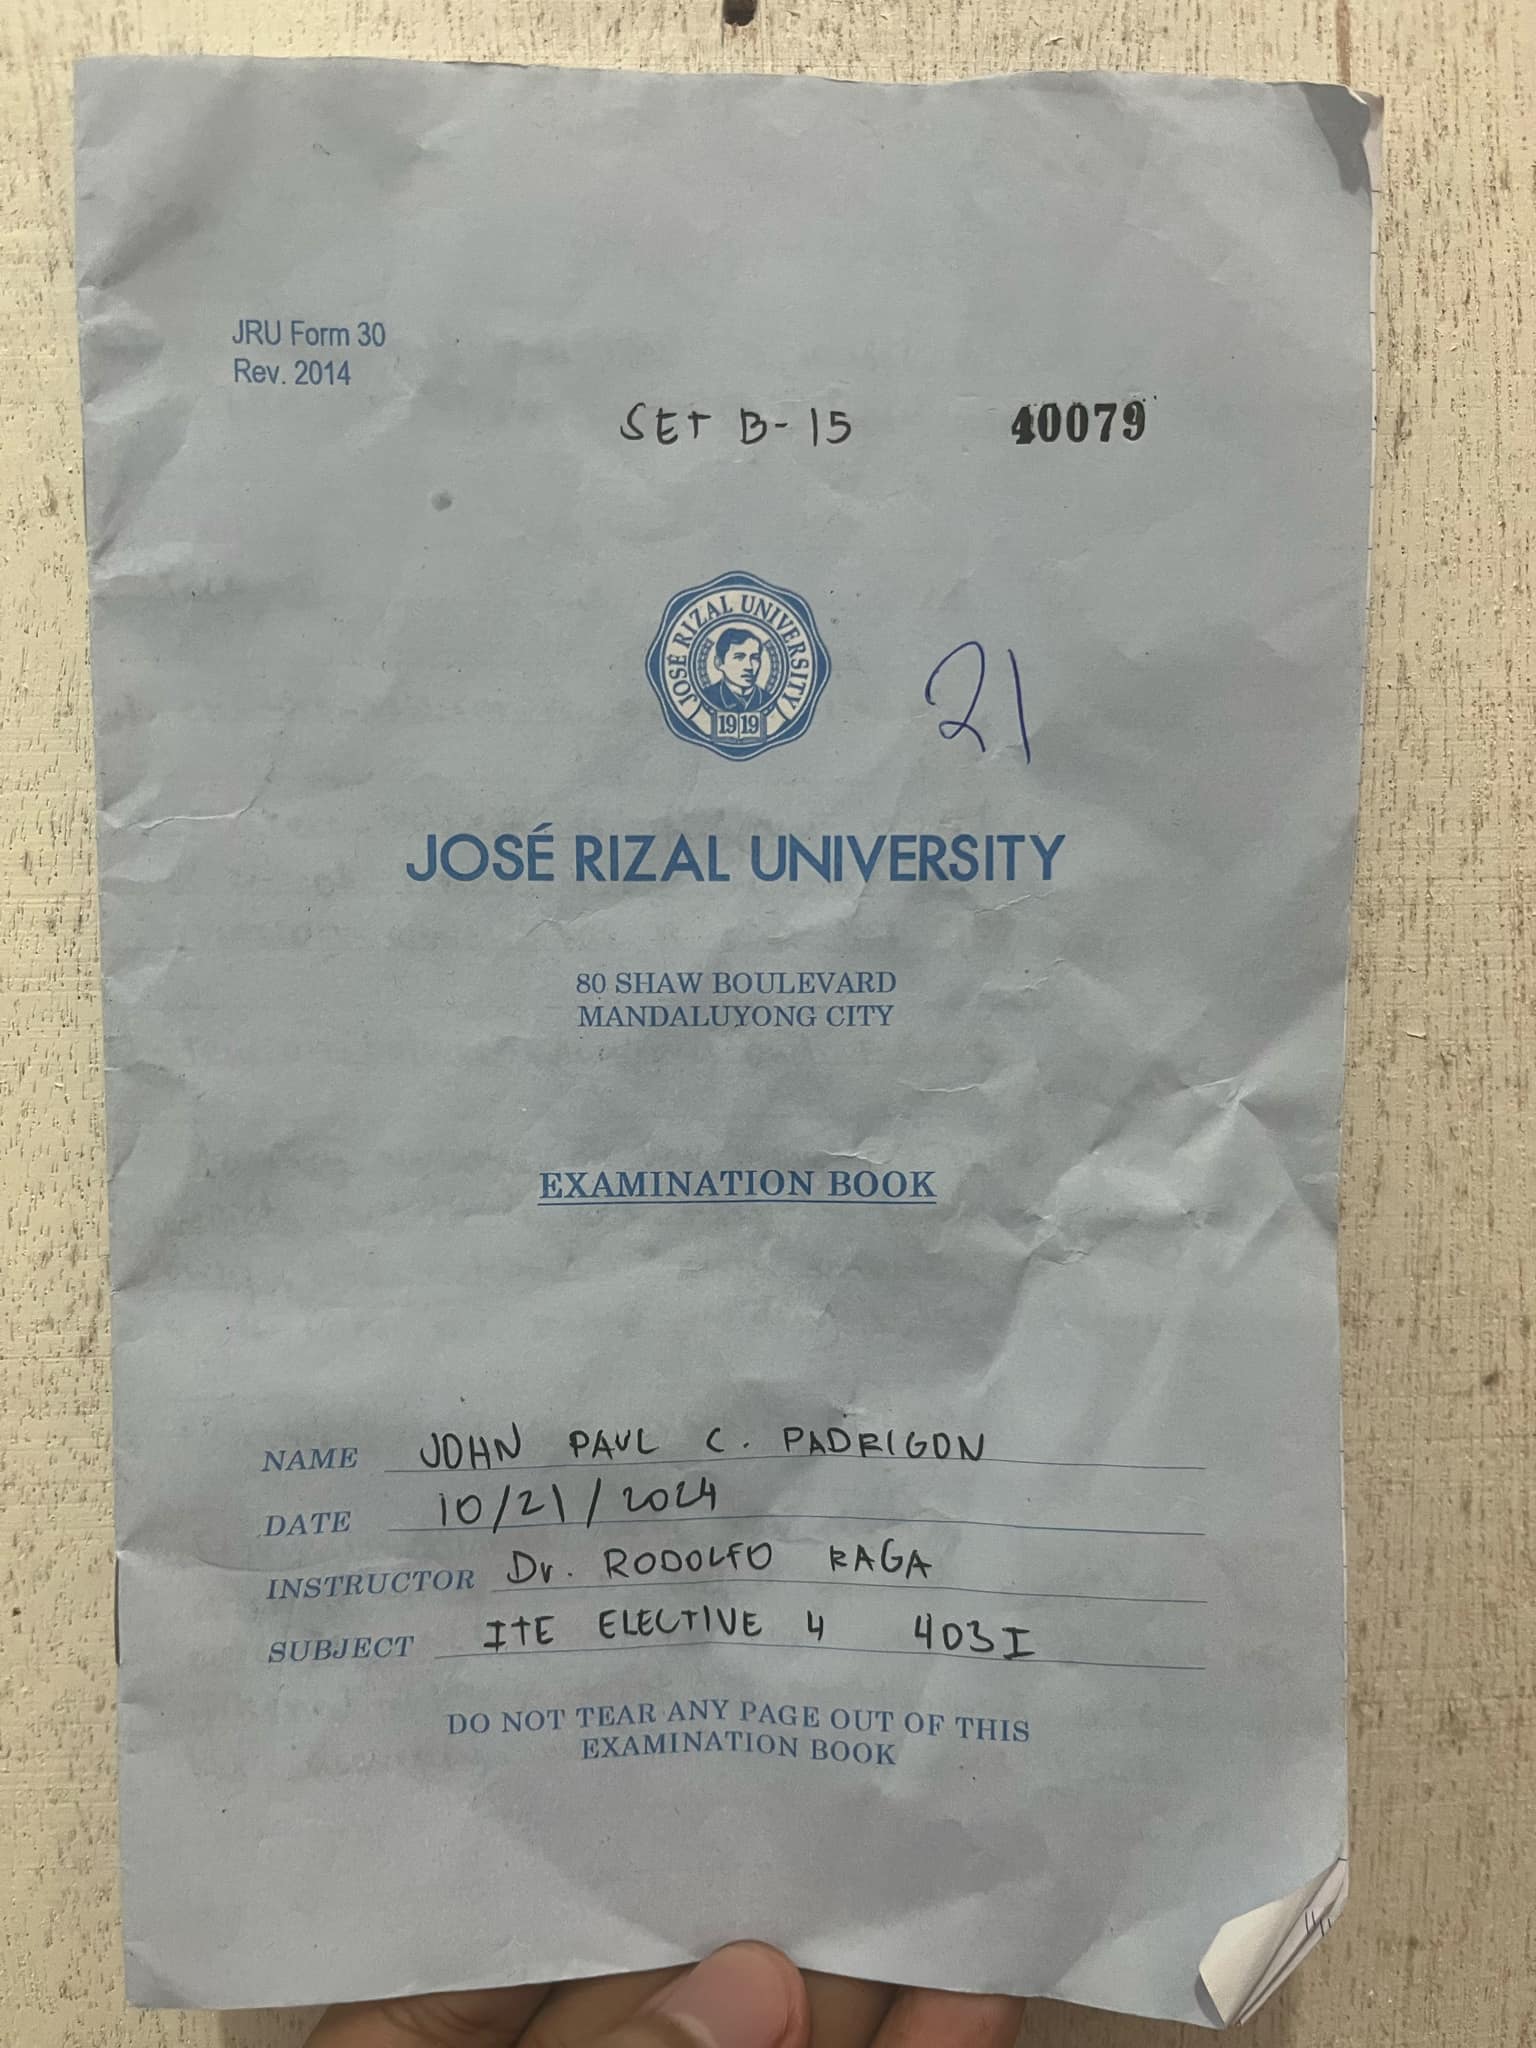 JRU Form 30
Rev. 2014
SET B-15 40079
JOSÉ RIZAL UNIVERSITY
1919
21
JOSÉ RIZAL UNIVERSITY
80 SHAW BOULEVARD
MANDALUYONG CITY
EXAMINATION BOOK
NAME JOHN PAUL C. PADRIGON
DATE 10/21/2024
INSTRUCTOR Dr. RODOLFO RAGA
SUBJECT ITE ELECTIVE 4 403I
DO NOT TEAR ANY PAGE OUT OF THIS
EXAMINATION BOOK